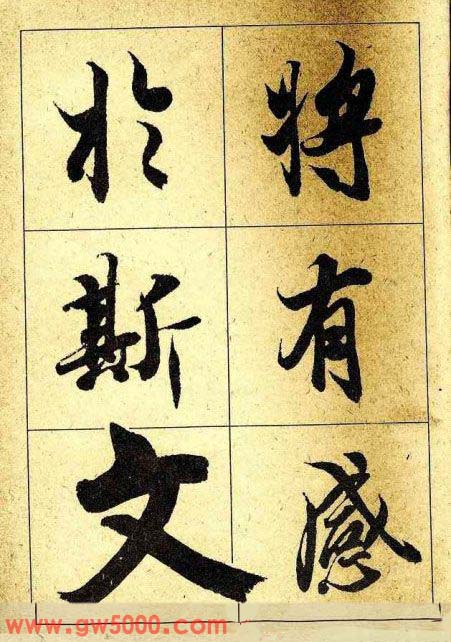 将有感
於斯文
www.gw5000.com